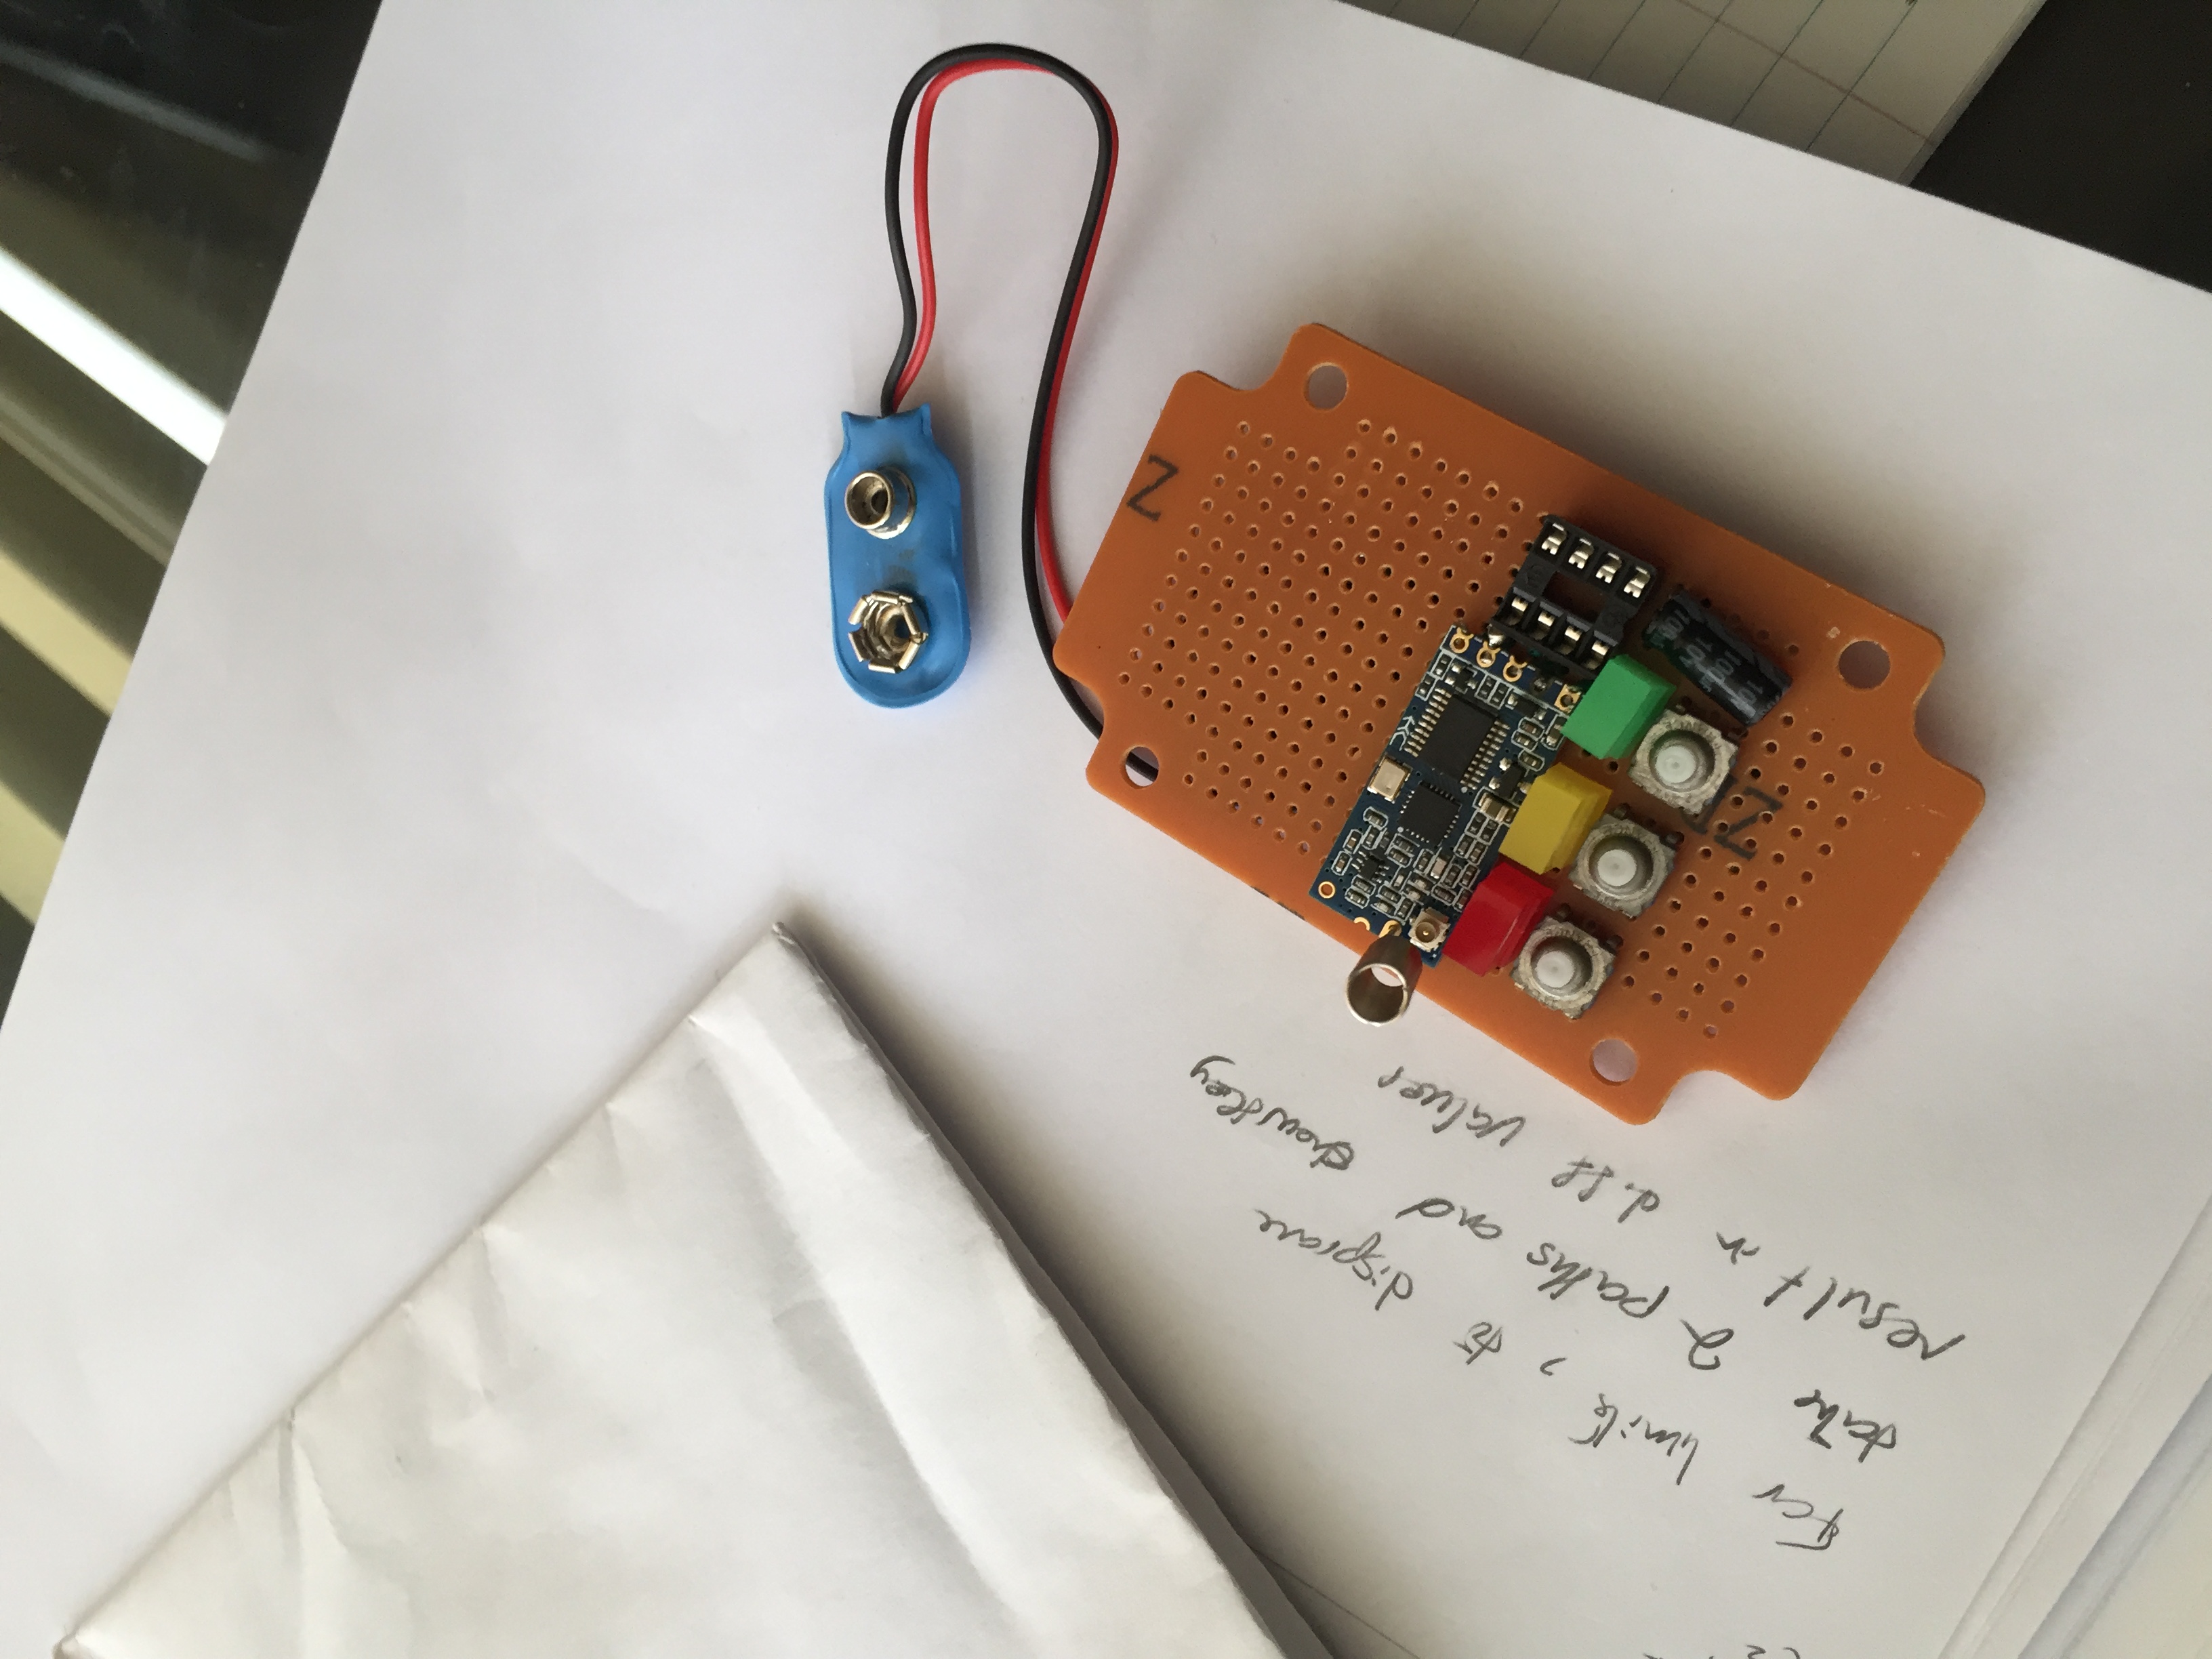 For limits, to disprove
take 2 paths and show they
result in diff values
Z
Z
100µF 10V